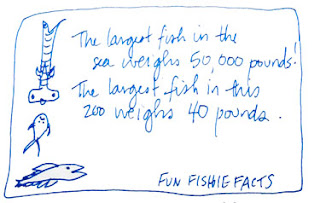 The largest fish in the
sea weighs 50,000 pounds!
The largest fish in this
zoo weighs 40 pounds.
FUN FISHIE FACTS